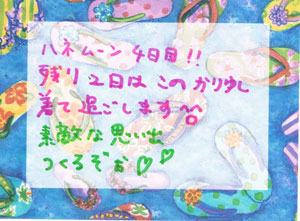 ハネムーン4日目!!
残り2日はこのかりゆし
着て過ごします^^
素敵な思い出
つくるぞぉ♡♡